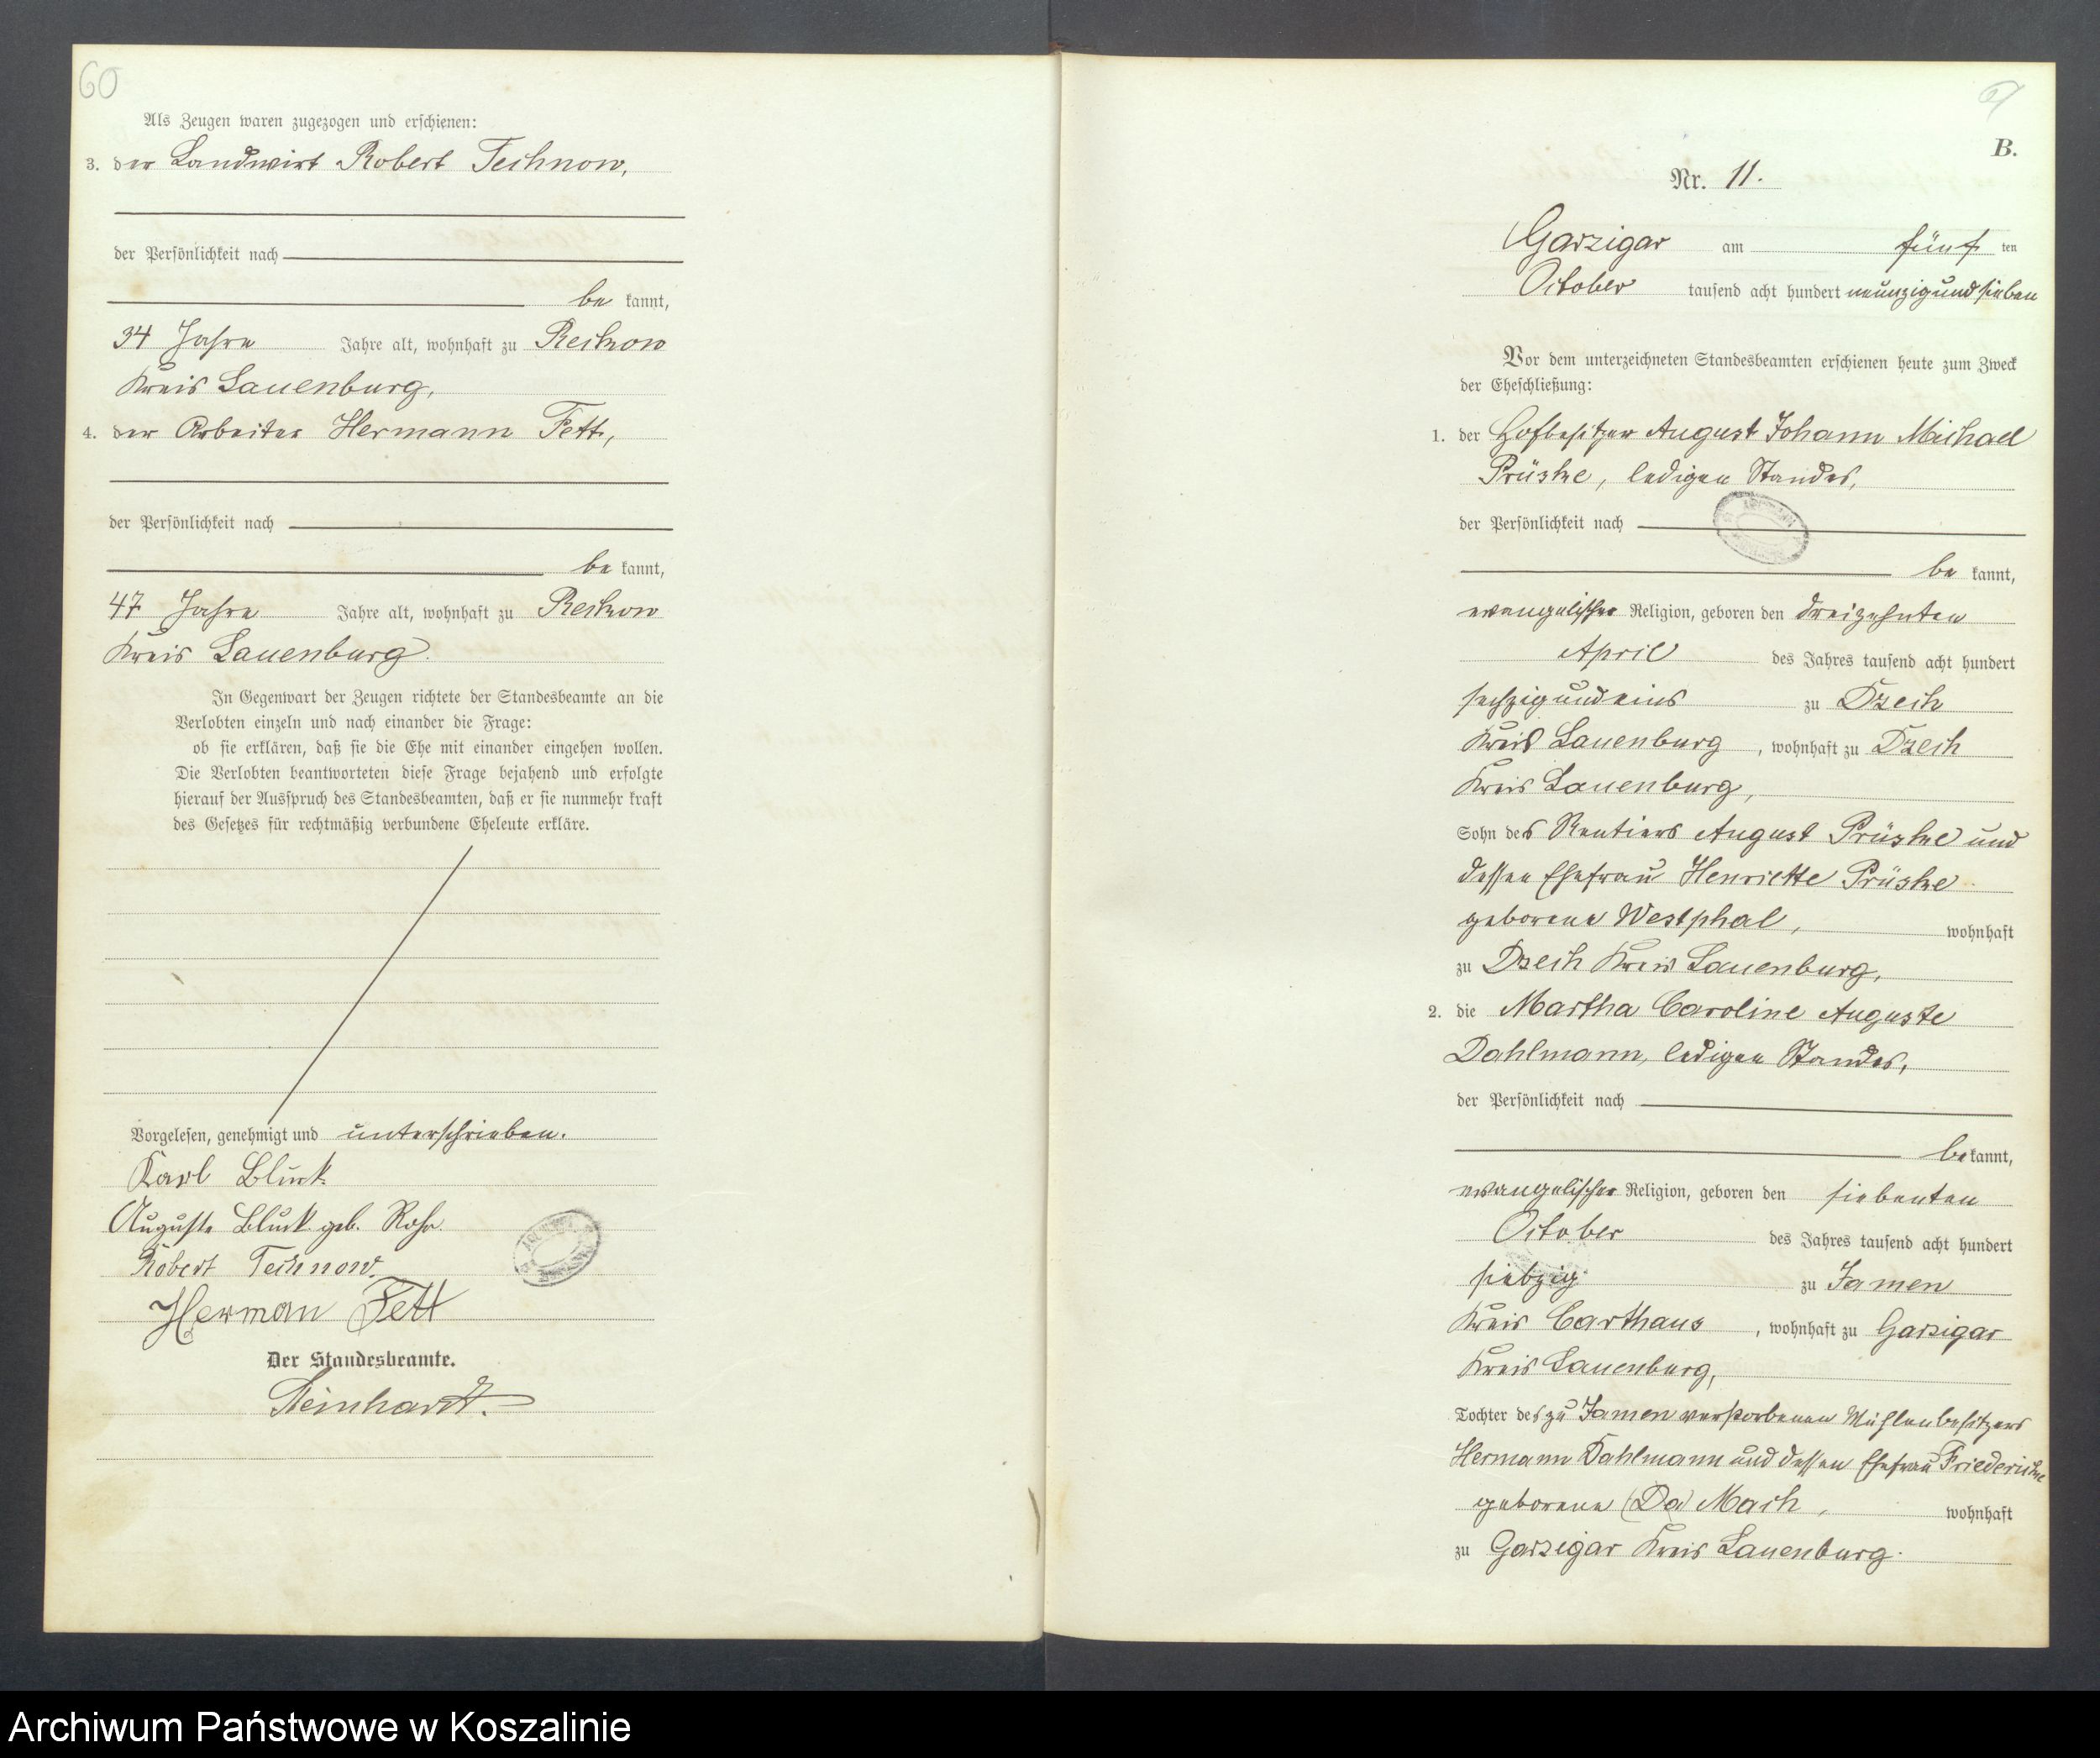 60
Als Zeugen waren zugezogen und erschienen:
3. der Landwirt Robert Technow,
der Persönlichkeit nach
be kannt,
34 Jahre Jahre alt, wohnhaft zu Reckow
Kreis Lauenburg,
4. der Arbeiter Hermann Fett,
der Persönlichkeit nach
be kannt,
47 Jahre Jahre alt, wohnhaft zu Reckow
Kreis Lauenburg.
In Gegenwart der Zeugen richtete der Standesbeamte an die
Verlobten einzeln und nach einander die Frage:
ob sie erklären, daß sie die Ehe mit einander eingehen wollen.
Die Verlobten beantworteten diese Frage bejahend und erfolgte
hierauf der Ausspruch des Standesbeamten, daß er sie nunmehr kraft
des Gesetzes für rechtmäßig verbundene Eheleute erkläre.
Vorgelesen, genehmigt und unterschrieben.
Karl Bluck
Auguste Bluck geb. Rohr
Robert Technow.
Herman Fett
Der Standesbeamte.
Steinhardt.
B.
Nr. 11.
Garzigar am fünf ten
October tausend acht hundert neunzig und sieben
Vor dem unterzeichneten Standesbeamten erschienen heute zum Zweck
der Eheschließung:
1. der Hofbesitzer August Johann Michael
Prüske, ledigen Standes,
der Persönlichkeit nach
be kannt,
evangelischer Religion, geboren den dreizehnten
April des Jahres tausend acht hundert
sechzig und eins zu Dzech
Kreis Lauenburg, wohnhaft zu Dzech
Kreis Lauenburg,
Sohn des Rentiers August Prüske und
dessen Ehefrau Henriette Prüske
geborene Westphal, wohnhaft
zu Dzech Kreis Lauenburg,
2. die Martha Caroline Auguste
Dahlmann, ledigen Standes,
der Persönlichkeit nach
be kannt,
evangelischer Religion, geboren den siebenten
October des Jahres tausend acht hundert
siebzig zu Jamen
Kreis Carthaus, wohnhaft zu Garzigar
Kreis Lauenburg,
Tochter des zu Jamen verstorbenen Mühlenbesitzers
Hermann Dahlmann und dessen Ehefrau Friedericke
geborene (Da) Mach, wohnhaft
zu Garzigar Kreis Lauenburg.
Archiwum Państwowe w Koszalinie